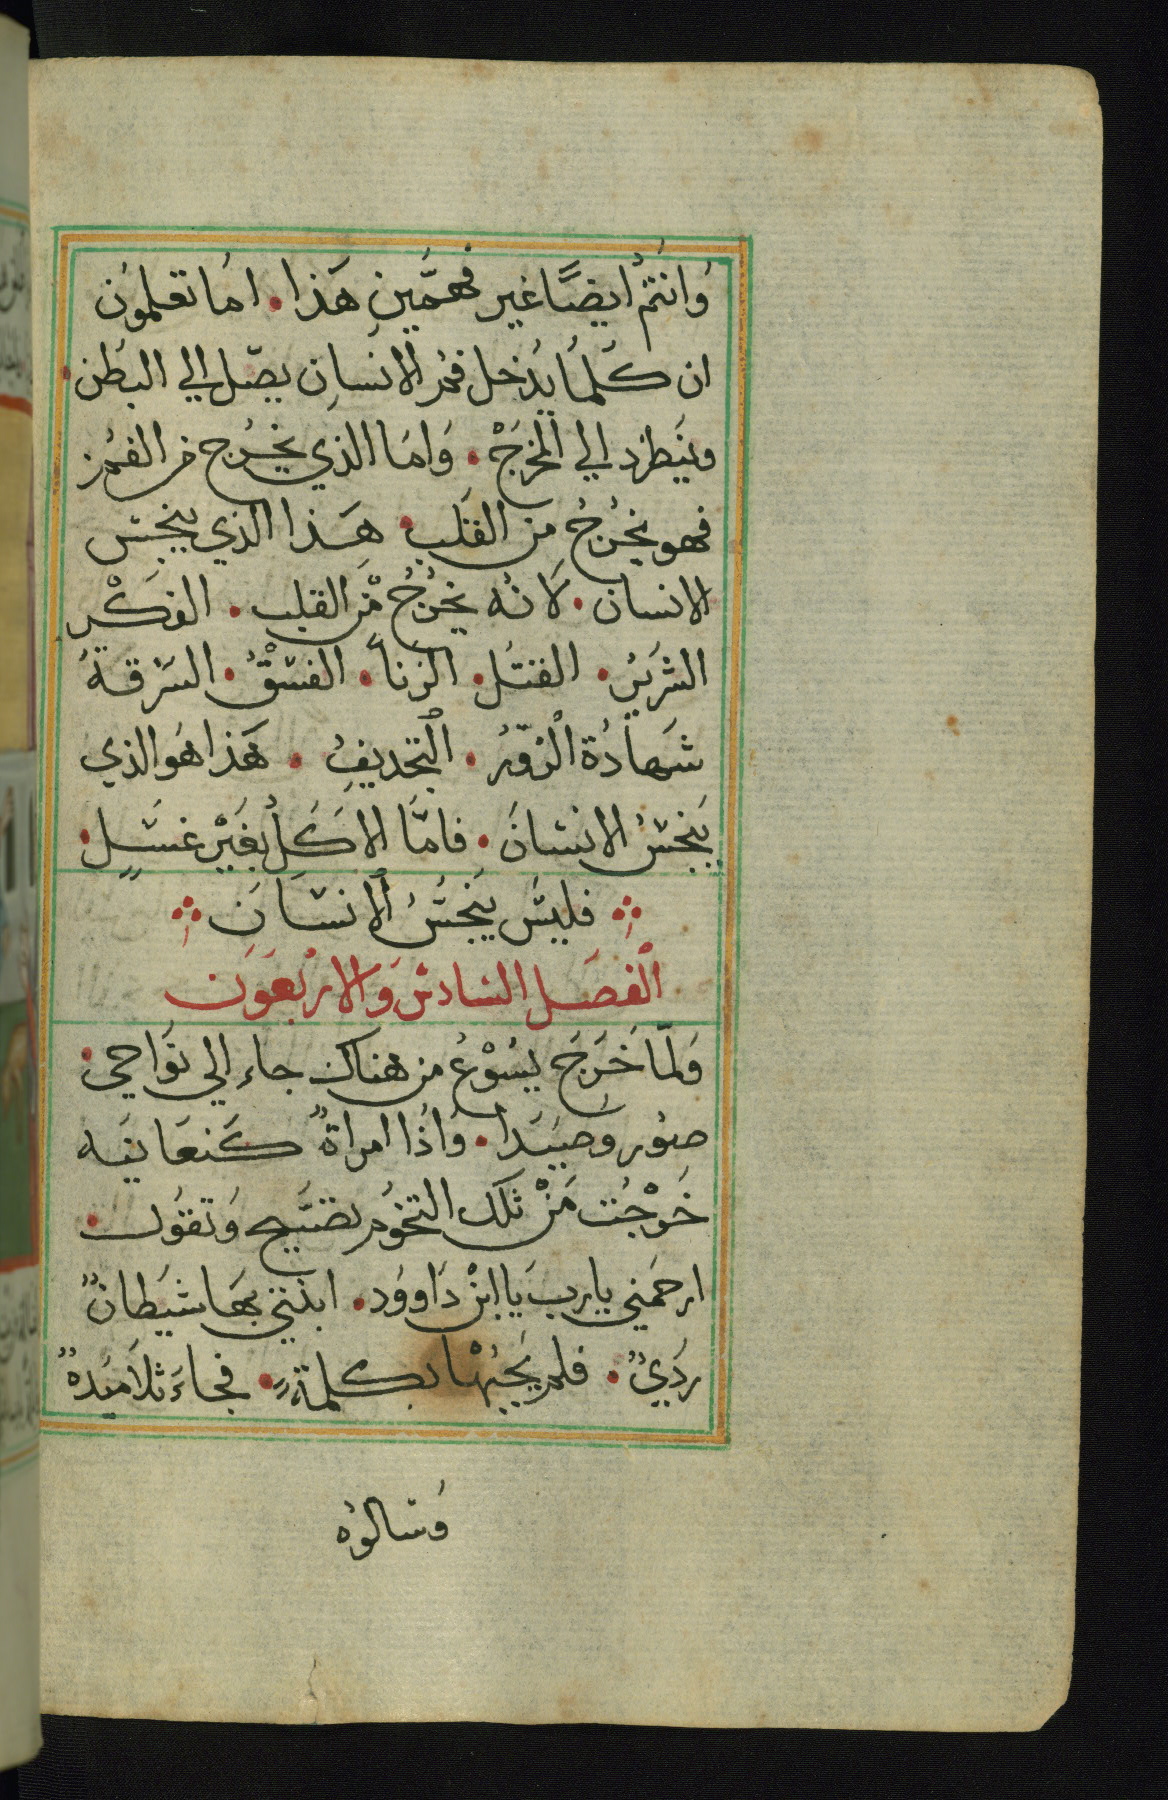 وَانتمُ ايضًا غير فهمّينِ هَذا . امَا تعلمَون
ان كلمَا يدُخل فمُ الانسَانِ يصَل الي البطن .
وينَطرد الي المَخرجْ . وَامَا الذي يخرُج من الفمُ
فهو يخرُجُ من القلبِ . هَذا الذي ينجس
الانسان . لاَنهُ يخرُجُ منَ القلب . الفكْر
الشريرُ . القتُل . الزنا . الفسْقُ . السَرقةُ
شهَادُة الزوّرُ . التجديفُ . هَذا هُو الذي
يَنجسُ الانسَانَ . فامَّا الاكَلُ بغَيْر غسَلٍ .
فليسَ يَنجسُ الانسَانَ
الفصَل السَادسَ وَالاربعَوَن
وَلمّا خَرَجَ يسُوْعُ من هناك جاء الي نوَاحي .
صوُر وَصَيدَا . وَاذُا امراةٌ كنعَانيَه
خَرْجُت منْ تلكَ التخوُم تصَيح وَتقوُل .
ارحمَني يارب يَا ابنْ دَاووَد . ابنتي بهَا شيَطانٌ
ردَيٌ . فلم يَجبْهَا بكلمةٍ . فجاءَ تلاَميَدهُ
وَسَالوُه